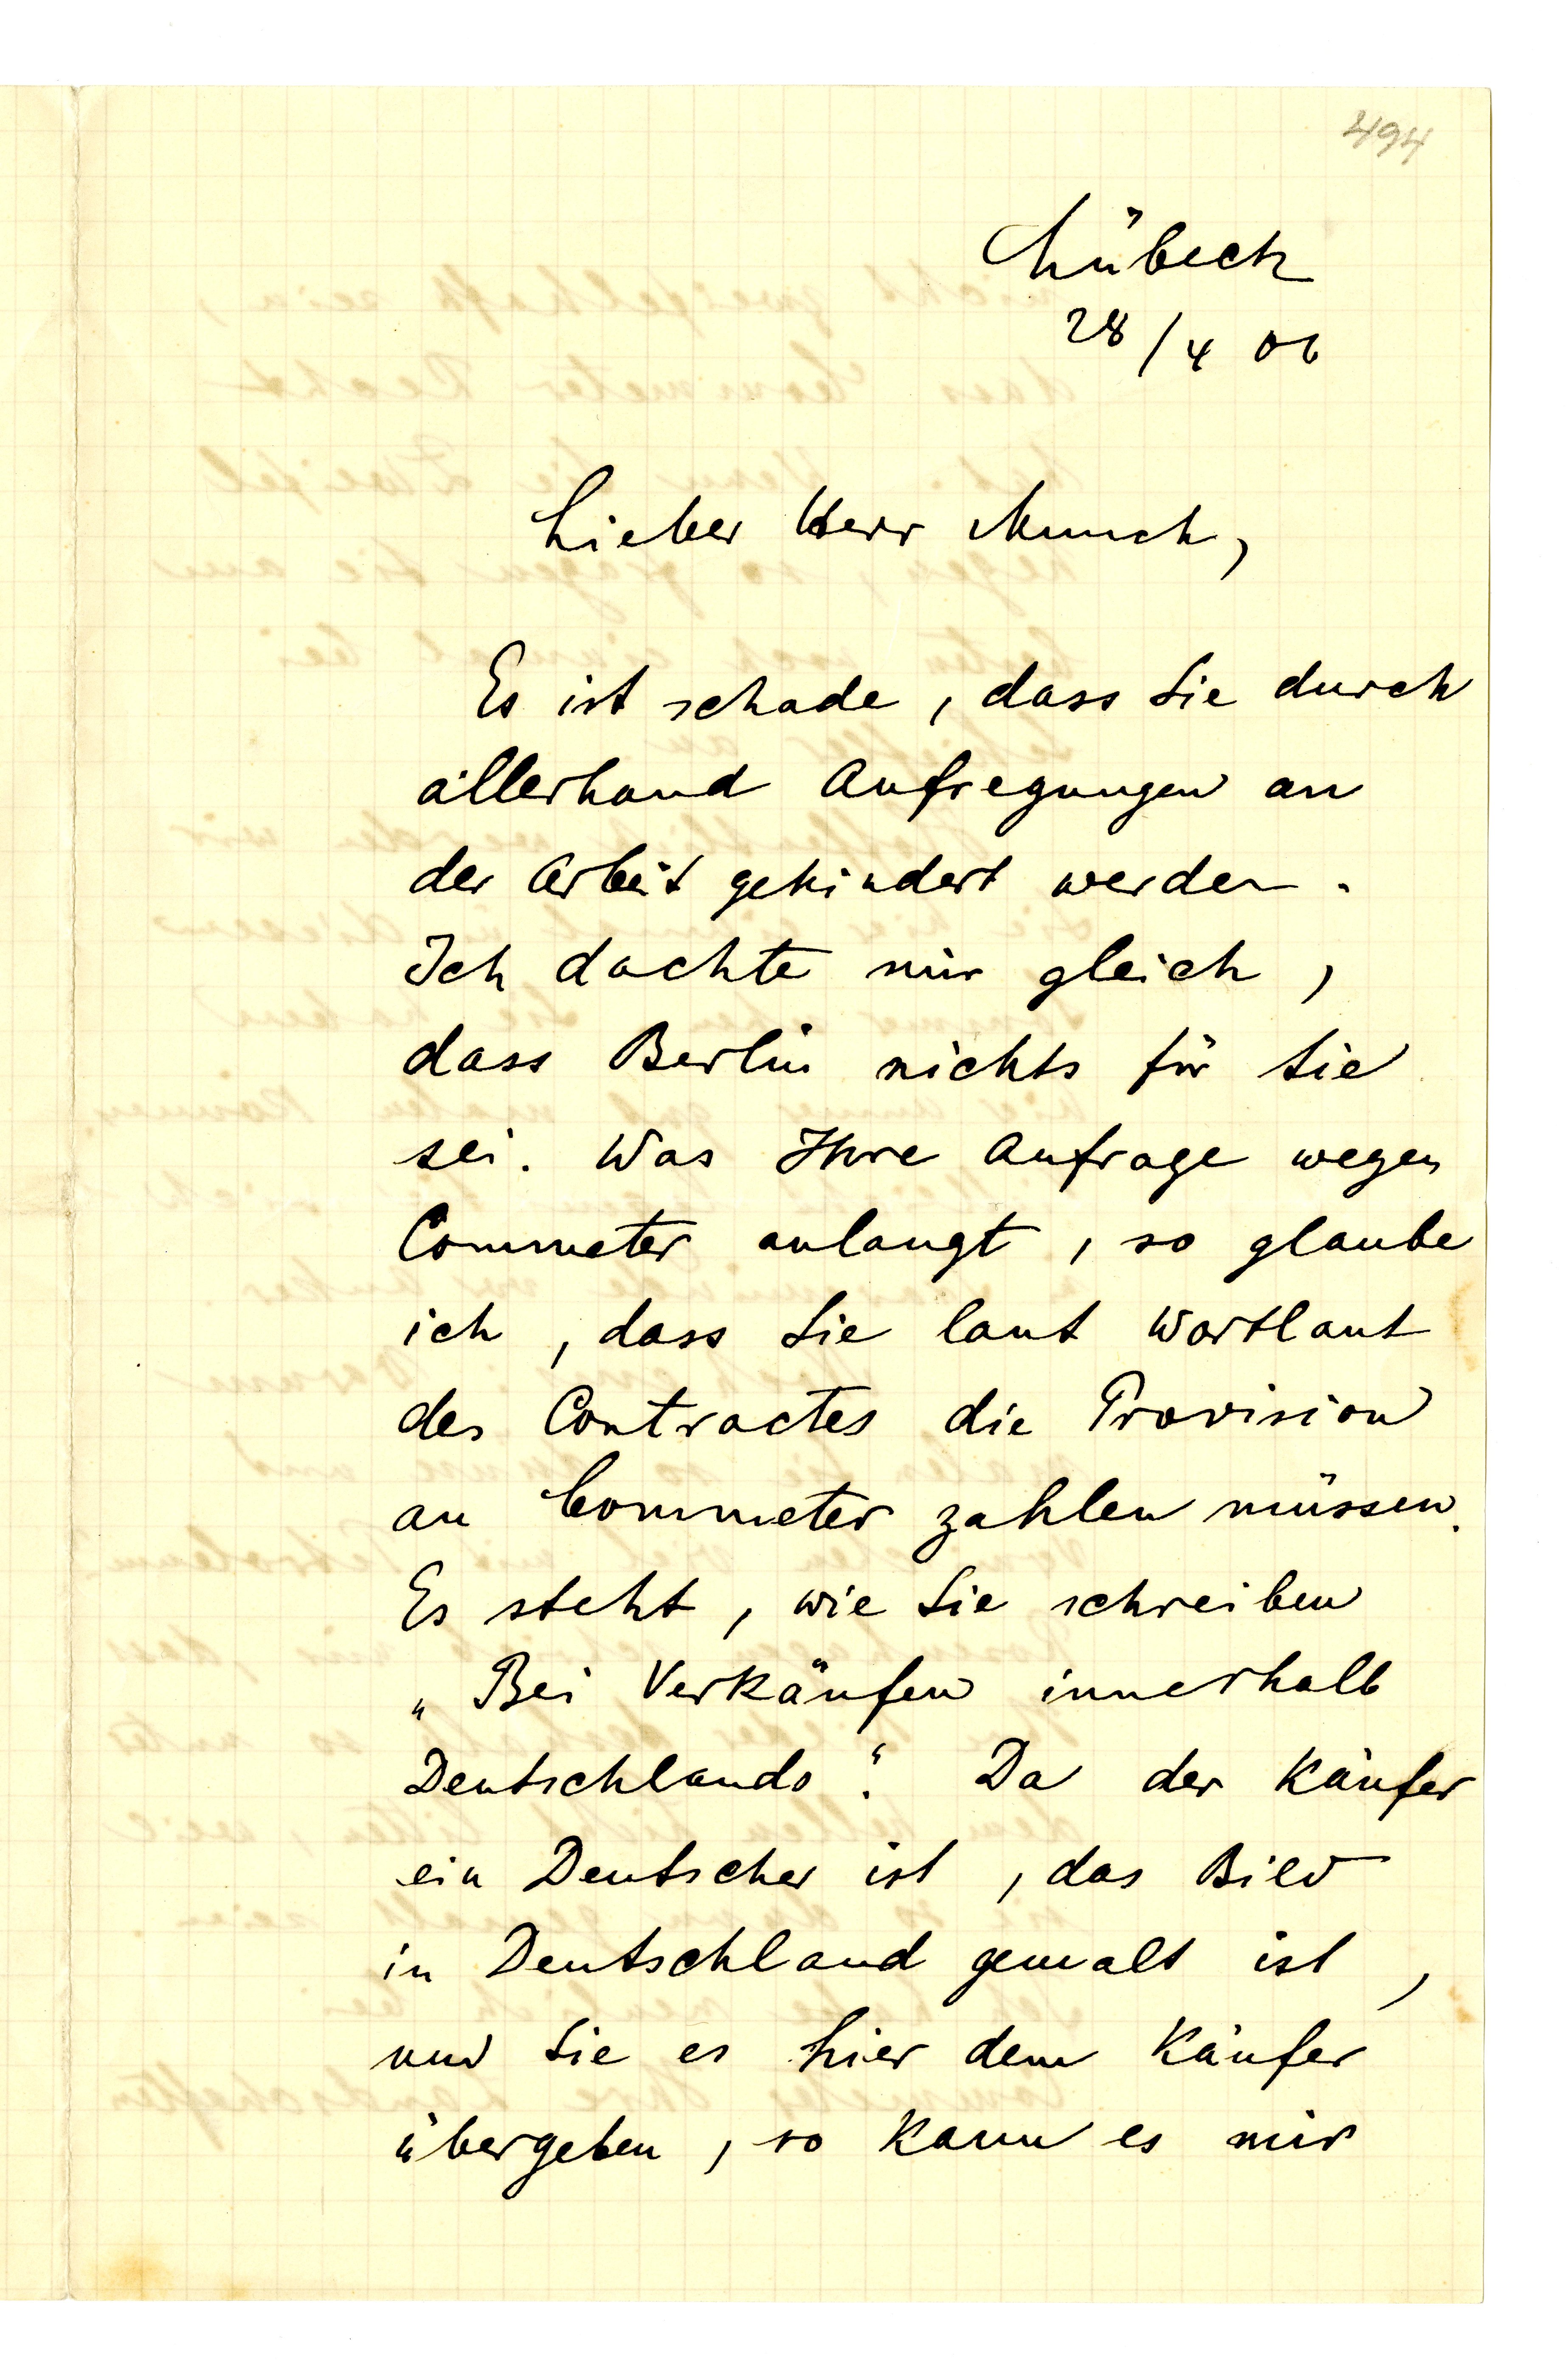 494
Lübeck
28/4 06
Lieber Herr Munch,
Es ist schade, dass Sie durch
allerhand Aufregungen an
der Arbeit gehindert werden.
Ich dachte mir gleich,
dass Berlin nichts für Sie
sei. Was Ihre Anfrage wegen
Commeter anlangt, so glaube
ich, dass Sie laut Wortlaut
des Contractes die Provision
an Commeter zahlen müssen.
Es steht, wie Sie schreiben
„Bei Verkäufen innerhalb
Deutschlands“. Da der Käufer
ein Deutscher ist, das Bild
in Deutschland gemalt ist,
und Sie es hier dem Käufer
übergeben, so kann es mir